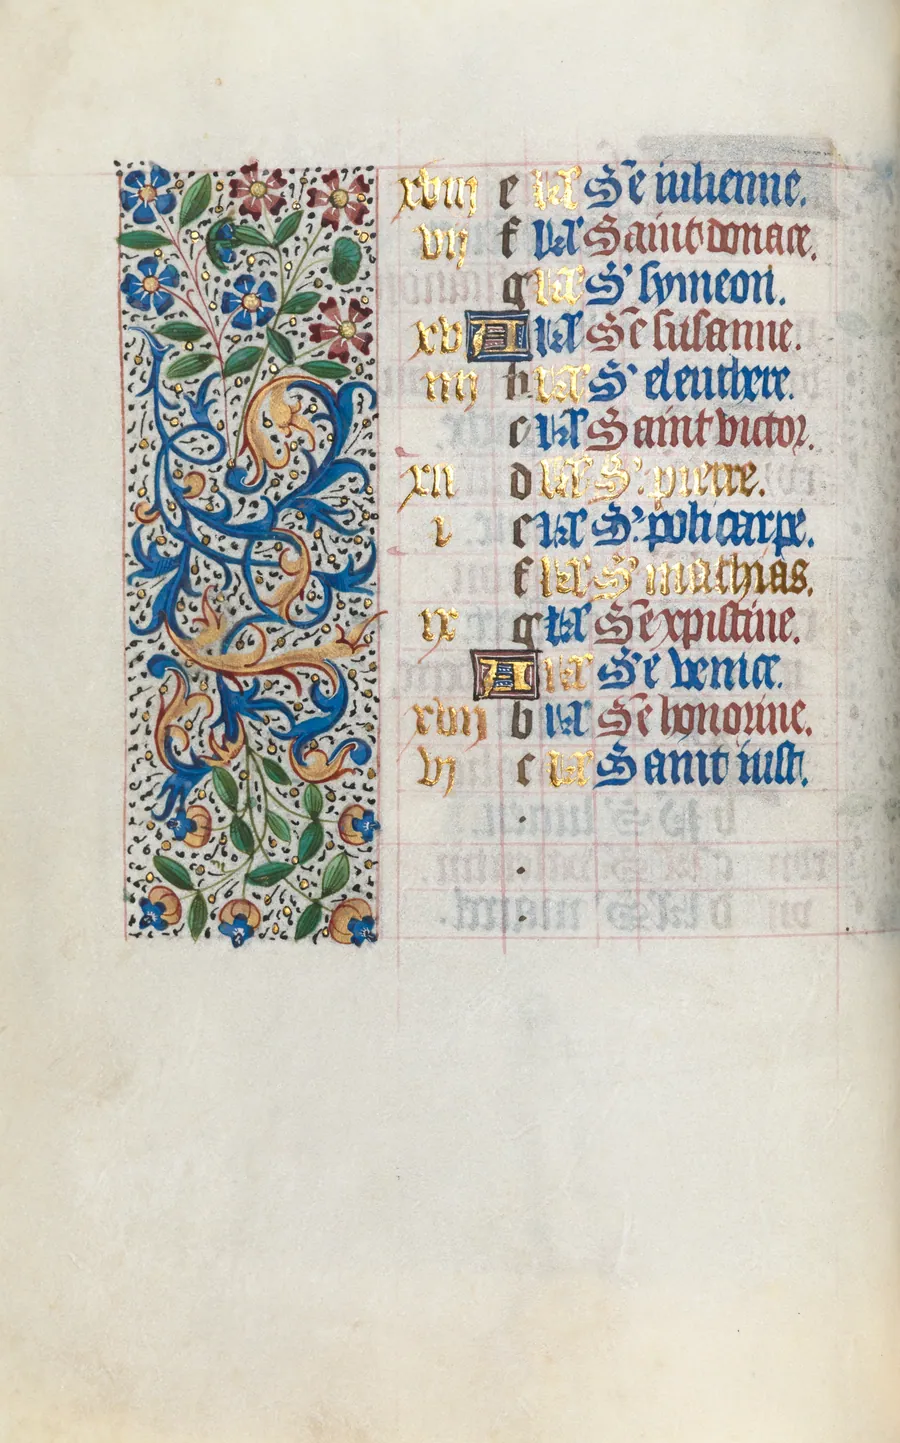 xviij e kł Sͤ iulienne.
vij f kł Saint donace.
g kł S' symeon.
xv A kł Sͤ susanne.
iiij b kł S' eleuthere.
c kł Saint victor.
xij d kł S' pierre.
i e kł S' policarpe.
f kł S' mathias.
ix g kł Sͤ expistine.
A kł Sͤ venice.
xvij b kł Sͤ honorine.
vj c kł Saint iust.